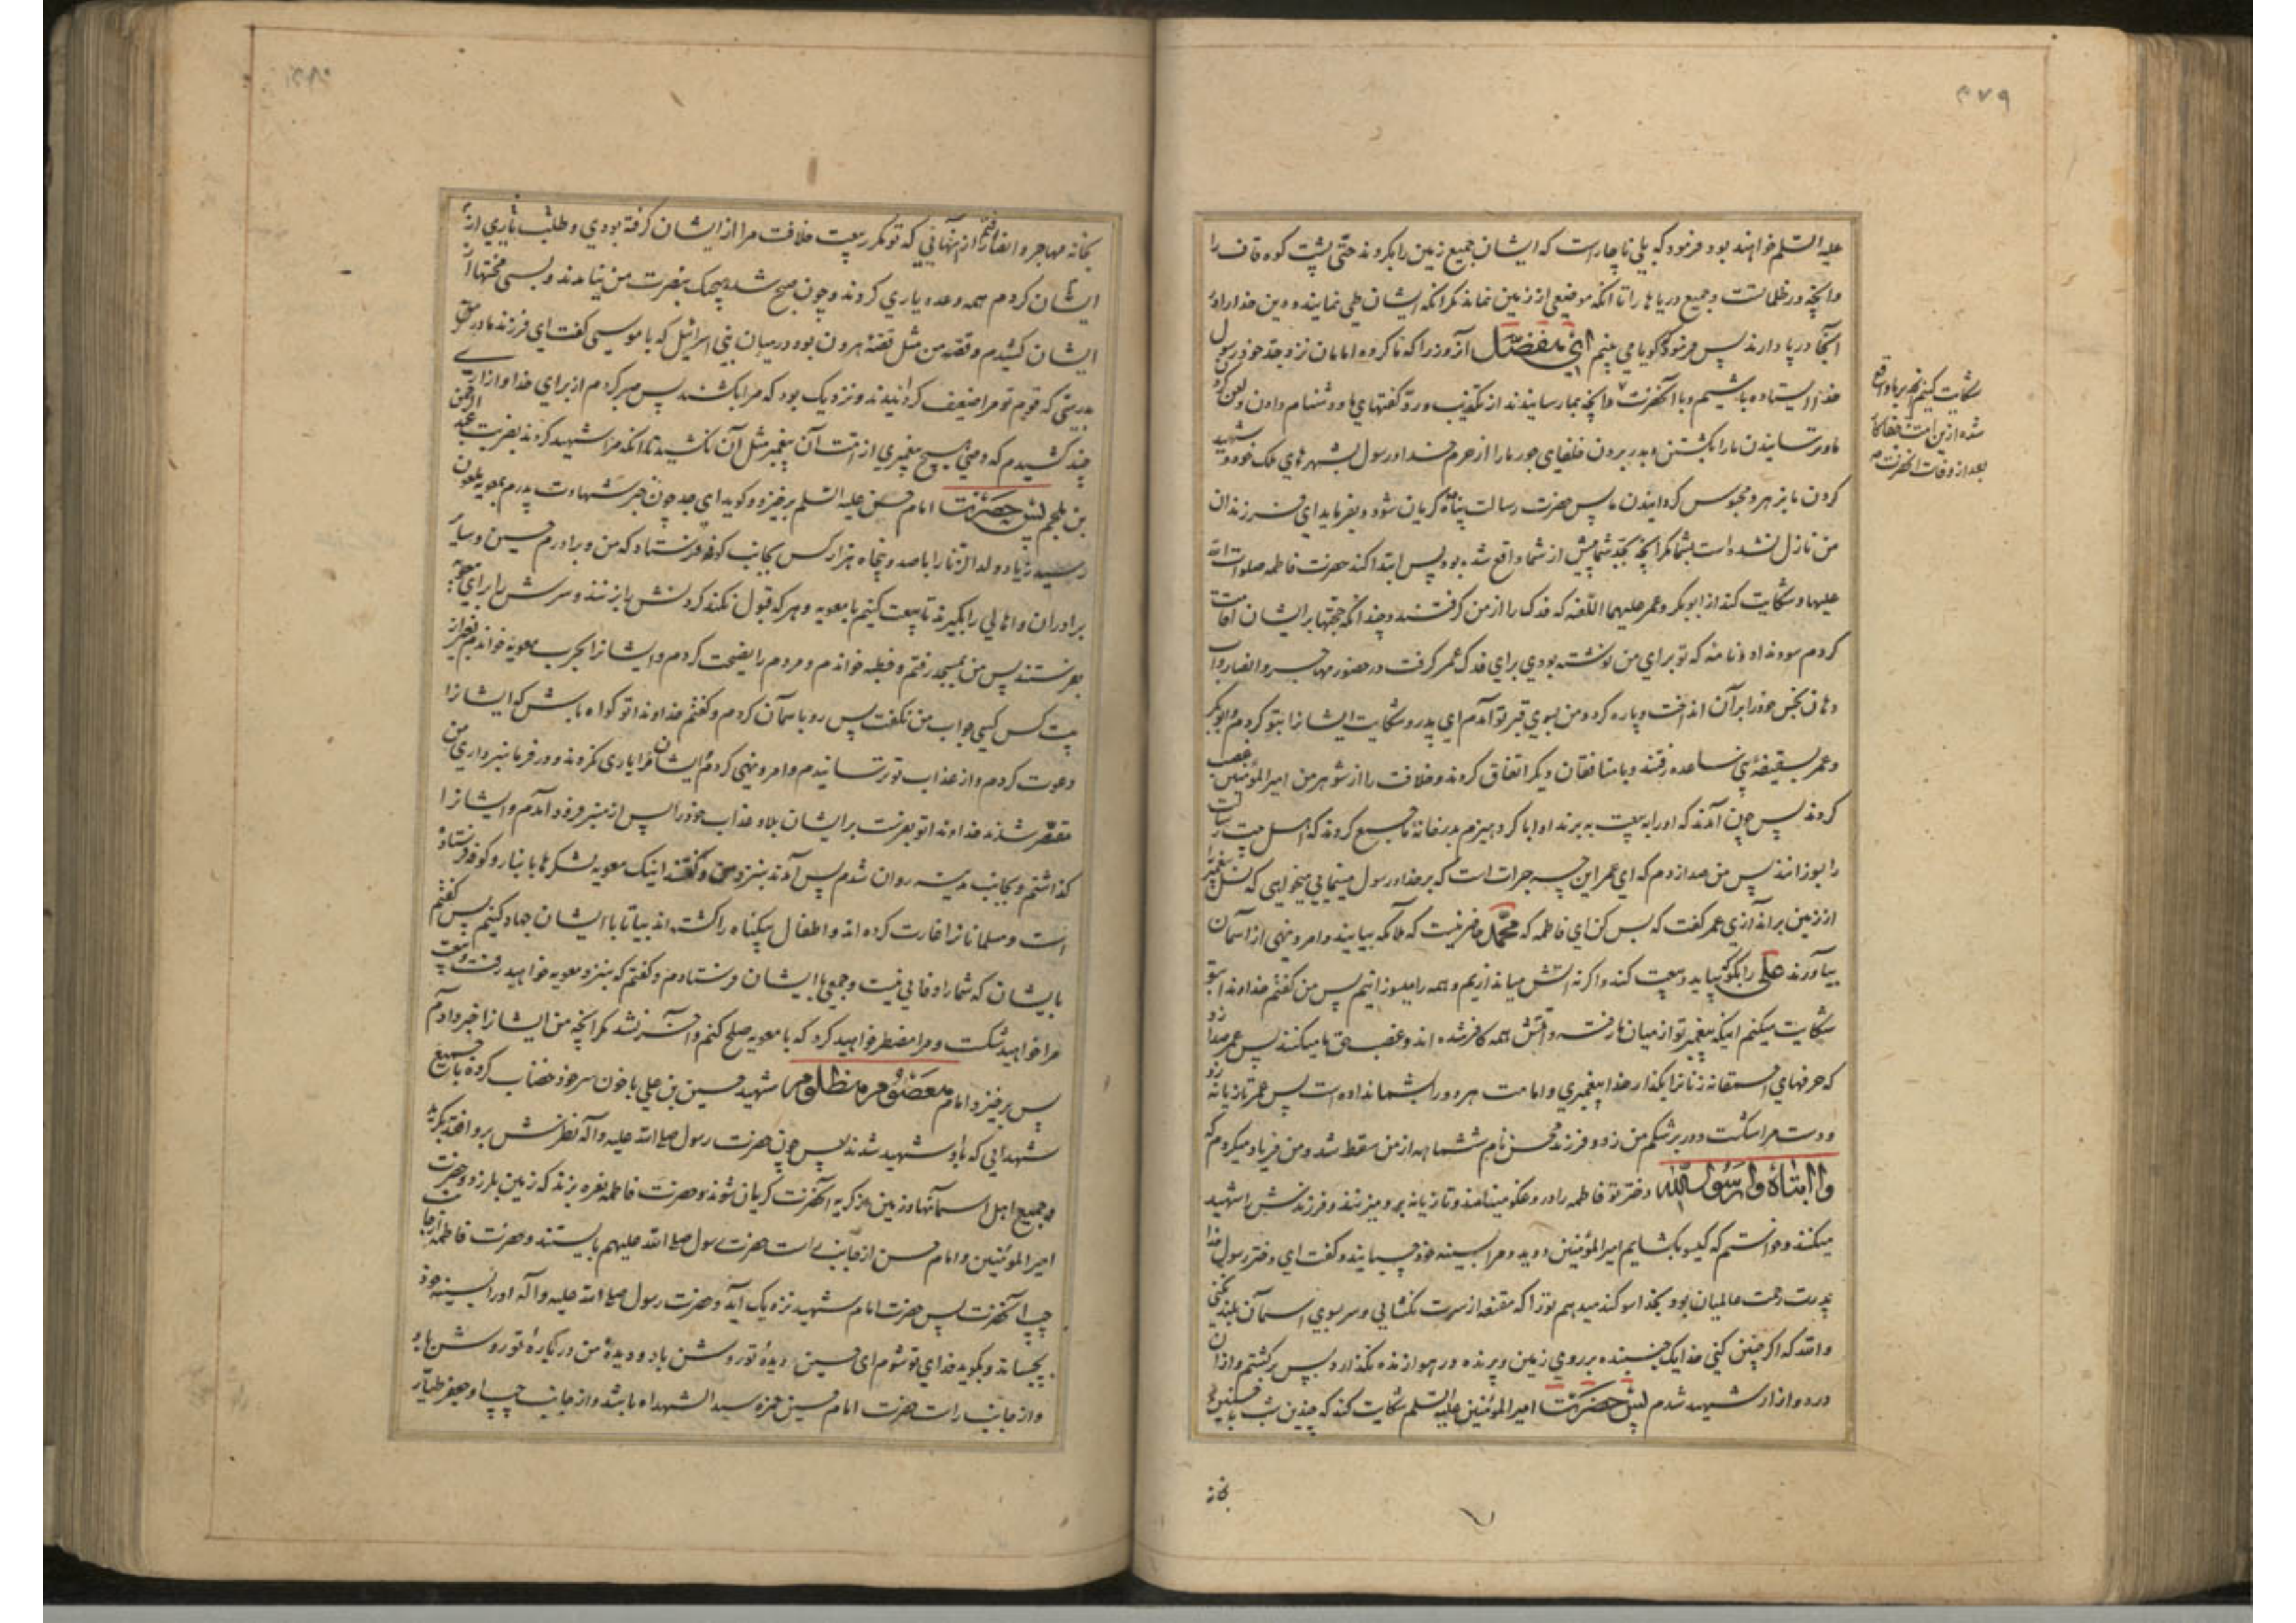 ۳۷۹
علیه السلم خواهند بود فرمود که بلی ناچارست که ایشان جمیع زمین را بگردند حتی پشت کوه قاف را
وانچه در ظلماتست وجمیع دریاها را تا انکه موضعی از زمین نماند مگر انکه ایشان طی نمایند ودین خدا را در
انجا برپا دارند پس فرمود که گویا می بینم ای مفضل آنروز را که ما گروه امامان نزد جد خود رسول
خدا ایستاده باشیم وبا آنحضرت وانچه بما رسانیدند از تکذیب ورد گفتهای ما ودشنام دادن ولعن کردن
شکایت کنیم انچه بر ما واقع
شده از این امت جفاکار
بعد از وفات آنحضرت
وترسانیدن ما را بکشتن وبدر بردن خلفای جور ما را از حرم خدا ورسول بشهرهای ملک خود وشهید
کردن ما بزهر ومحبوس گردانیدن ما پس حضرت رسالت پناه گریان شود وبفرماید ای فرزندان
من نازل نشده است بشما مگر انچه بجد شما پیش از شما واقع شده بود پس ابتدا کند حضرت فاطمه صلوات الله
علیها وشکایت کند از ابوبکر وعمر علیهما اللعنه که فدک را از من گرفتند وچندانکه حجتها برایشان اقامت
کردم سود نداد ونامه که تو برای من نوشته بودی برای فدک عمر گرفت در حضور مهاجر وانصار واب
دهان نجس خود را بر آن انداخت وپاره کرد ومن بسوی قبر تو آمدم ای پدر وشکایت ایشانرا بتو کردم وابوبکر
وعمر بسقیفه بنی ساعده رفتند وبا منافقان دیگر اتفاق کردند وخلافت را از شوهر من امیر المؤمنین غصب
کردند پس چون آمدند که او را به بیعت به برند او ابا کرد هیزم بدر خانه ما جمع کردند که اهل بیت رسالت
را بسوزانند پس من صدا زدم که ای عمر این چه جرات است که بر خدا ورسول مینمایی میخواهی که نسل پیغمبر را
از زمین براندازی عمر گفت که بس کن ای فاطمه که محمد حاضر نیست که ملائکه بیایند وامر ونهی از اسمان
بیاورند علی را بگو که بیاید وبیعت کند واگر نه اتش میاندازیم وهمه را میسوزانیم پس من گفتم خداوندا بتو
شکایت میکنم اینکه پیغمبر تو از میان ما رفته وامتش همه کافر شده اند وغصب حق ما میکنند پس عمر صدا زد
که حرفهای احمقانه زنانرا بگذار خدا پیغمبری وامامت هر دو را بشما نداده است پس عمر تازیانه زد
ودست مرا شکست ودر بر شکم من زد وفرزند محسن نام ششماهه از من سقط شد ومن فریاد میکردم که
وا ابتاه وا رسول الله دختر تو فاطمه را دروغگو مینامند وتازیانه بر او میزنند وفرزندش را شهید
میکنند وخواستم که گیسو بگشایم امیر المؤمنین دوید ومرا بسینه خود چسبانید وگفت ای دختر رسول خدا
پدرت رحمت عالمیان بود بخدا سوگند میدهم تو را که مقنعه از سرت نگشایی وسر بسوی اسمان بلند نکنی
والله که اگر چنین کنی خدا یک جنبنده بر روی زمین وپرنده در هوا زنده نگذارد پس برگشتم واز ان
درد وازار شهید شدم پس حضرت امیر المؤمنین علیه السلم شکایت کند که چندین شب با حسنین
بخانه
بخانه مهاجر وانصار رفتم از انهایی که تو مکرر بیعت خلافت مرا از ایشان گرفته بودی وطلب یاری از
ایشان کردم همه وعده یاری کردند وچون صبح شد هیچیک بنصرت من نیامدند وبسی محنتها از
ایشان کشیدم وقصه من مثل قصه هرون بود در میان بنی اسرائیل که با موسی گفت ای فرزند مادر
بدرستی که قوم تو مرا ضعیف گردانیدند ونزدیک بود که مرا بکشند پس صبر کردم از برای خدا وازاری
چند کشیدم که وصی هیچ پیغمبری از امت آن پیغمبر مثل آن نکشید تا انکه مرا شهید کردند بضربت عبد الرحمن
بن ملجم پس حضرت امام حسن علیه السلم برخیزد وگوید ای جد چون خبر شهادت پدرم بمعویه ملعون
رسید زیاد ولد الزنا را با صد وپنجاه هزار کس بجانب کوفه فرستاد که من وبرادرم حسین وسایر
برادران واهالی را بگیرند تا بیعت کنیم با معویه وهر که قبول نکند گردنش را بزنند وسرش را برای معویه
بفرستند پس من بمسجد رفتم وخطبه خواندم ومردم را نصیحت کردم وایشانرا بحرب معویه خواندم بغیر از
بیست کس کسی جواب من نگفت پس رو باسمان کردم وگفتم خداوندا تو گواه باش که ایشانرا
دعوت کردم واز عذاب تو ترسانیدم وامر ونهی کردم ایشان مرا یاری نکردند ودر فرمانبرداری من
مقصر شدند خداوندا تو بفرست بر ایشان بلا وعذاب خود را پس از منبر فرود آمدم وایشانرا
گذاشتم وبجانب مدینه روان شدم پس آمدند بنزد من وگفتند اینک معویه لشکرها بانبار وکوفه فرستاده
است ومسلمانانرا غارت کرده اند واطفال بیگناه را کشته اند بیا تا با ایشان جهاد کنیم پس گفتم
بایشان که شما را وفایی نیست وجمعی با ایشان فرستادم وگفتم که بنزد معویه خواهید رفت وبیعت
مرا خواهید شکست ومرا مضطر خواهید کرد که با معویه صلح کنم واخر نشد مگر انچه من ایشانرا خبر دادم
پس برخیزد امام معصوم مظلوم شهید حسین بن علی با خون سر خود خضاب کرده با جمیع
شهدایی که با او شهید شدند پس چون حضرت رسول صلی الله علیه واله نظرش بر او افتد بگرید
وجمیع اهل اسمانها وزمین از گریه آنحضرت گریان شوند وحضرت فاطمه نعره بزند که زمین بلرزد وحضرت
امیر المومنین وامام حسن از جانب راست حضرت رسول صلی الله علیهم بایستند وحضرت فاطمه از جانب
چپ آنحضرت پس حضرت امام شهید نزدیک آید وحضرت رسول صلی الله علیه واله او را بسینه خود
بچسباند وبگوید فدای تو شوم ای حسین دیدهٔ تو روشن باد ودیدهٔ من در بارهٔ تو روشن باد
واز جانب راست حضرت امام حسین حمزه سید الشهداء باشد واز جانب چپ او جعفر طیار